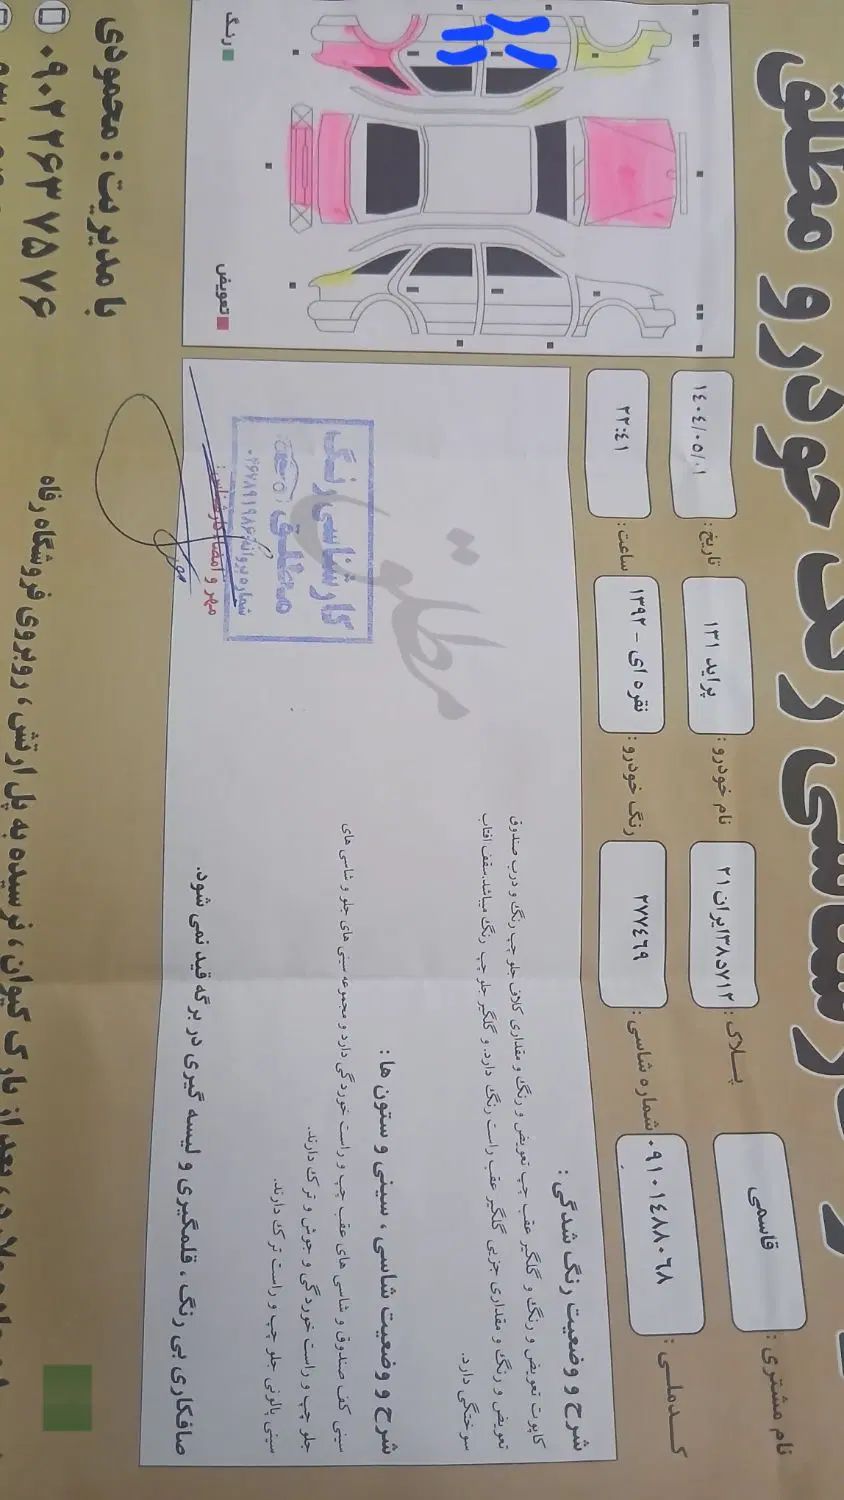 رنگ خودرو مطلق
با مدیریت : محمودی
۰۹۰۲ ۲۶۳ ۷۵ ۷۶
رنگ
تعویض
نام مشتری : قاسمی
پلاک : ۷۱۲د۳۸ایران۲۱
نام خودرو : پراید ۱۳۱
تاریخ : ۱٤۰٤/۰٥/۰۱
کدملی : ۰۹۱۰۱٤۸۸۰٦۸
شماره شاسی : ۲۷۷٤٦۹
رنگ خودرو : نقره ای - ۱۳۹۲
ساعت : ۲۲:٤۱
شرح و وضعیت رنگ شدگی :
کاپوت تعویض و رنگ و گلگیر عقب چپ تعویض و رنگ و مقداری کلاف جلو چپ رنگ و درب صندوق
تعویض و رنگ و مقداری جزیی گلگیر عقب راست رنگ دارد. و گلگیر جلو چپ رنگ میباشد.سقف افتاب
سوختگی دارد.
شرح و وضعیت شاسی ، سینی و ستون ها :
سینی کف صندوق و شاسی های عقب چپ و راست خوردگی دارد و مجموعه سینی های جلو و شاسی های
جلو چپ و راست خوردگی و جوش و ترک دارند.
سینی پالونی جلو چپ و راست ترک دارند.
مطلق
کارشناسی رنگ
مطلق
شماره پروانه:۰۴۶۷۸۹۱۹۸۶
مهر و امضاء کارشناس:
صافکاری بی رنگ ، قلمگیری و لیسه گیری در برگه قید نمی شود.
بعد از پارک کیوان ، نرسیده به پل ارتش ، روبروی فروشگاه رفاه